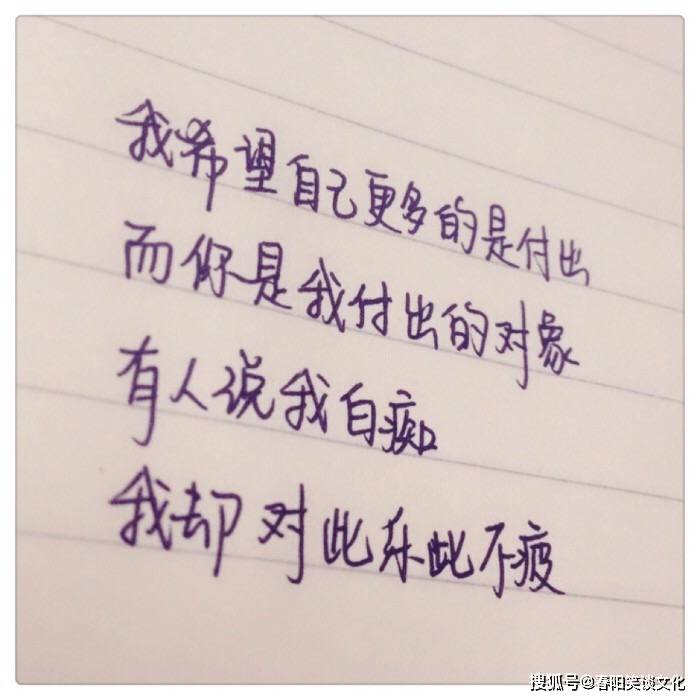 我希望自己更多的是付出
而你是我付出的对象
有人说我白痴
我却对此乐此不疲
搜狐号@春阳笑谈文化